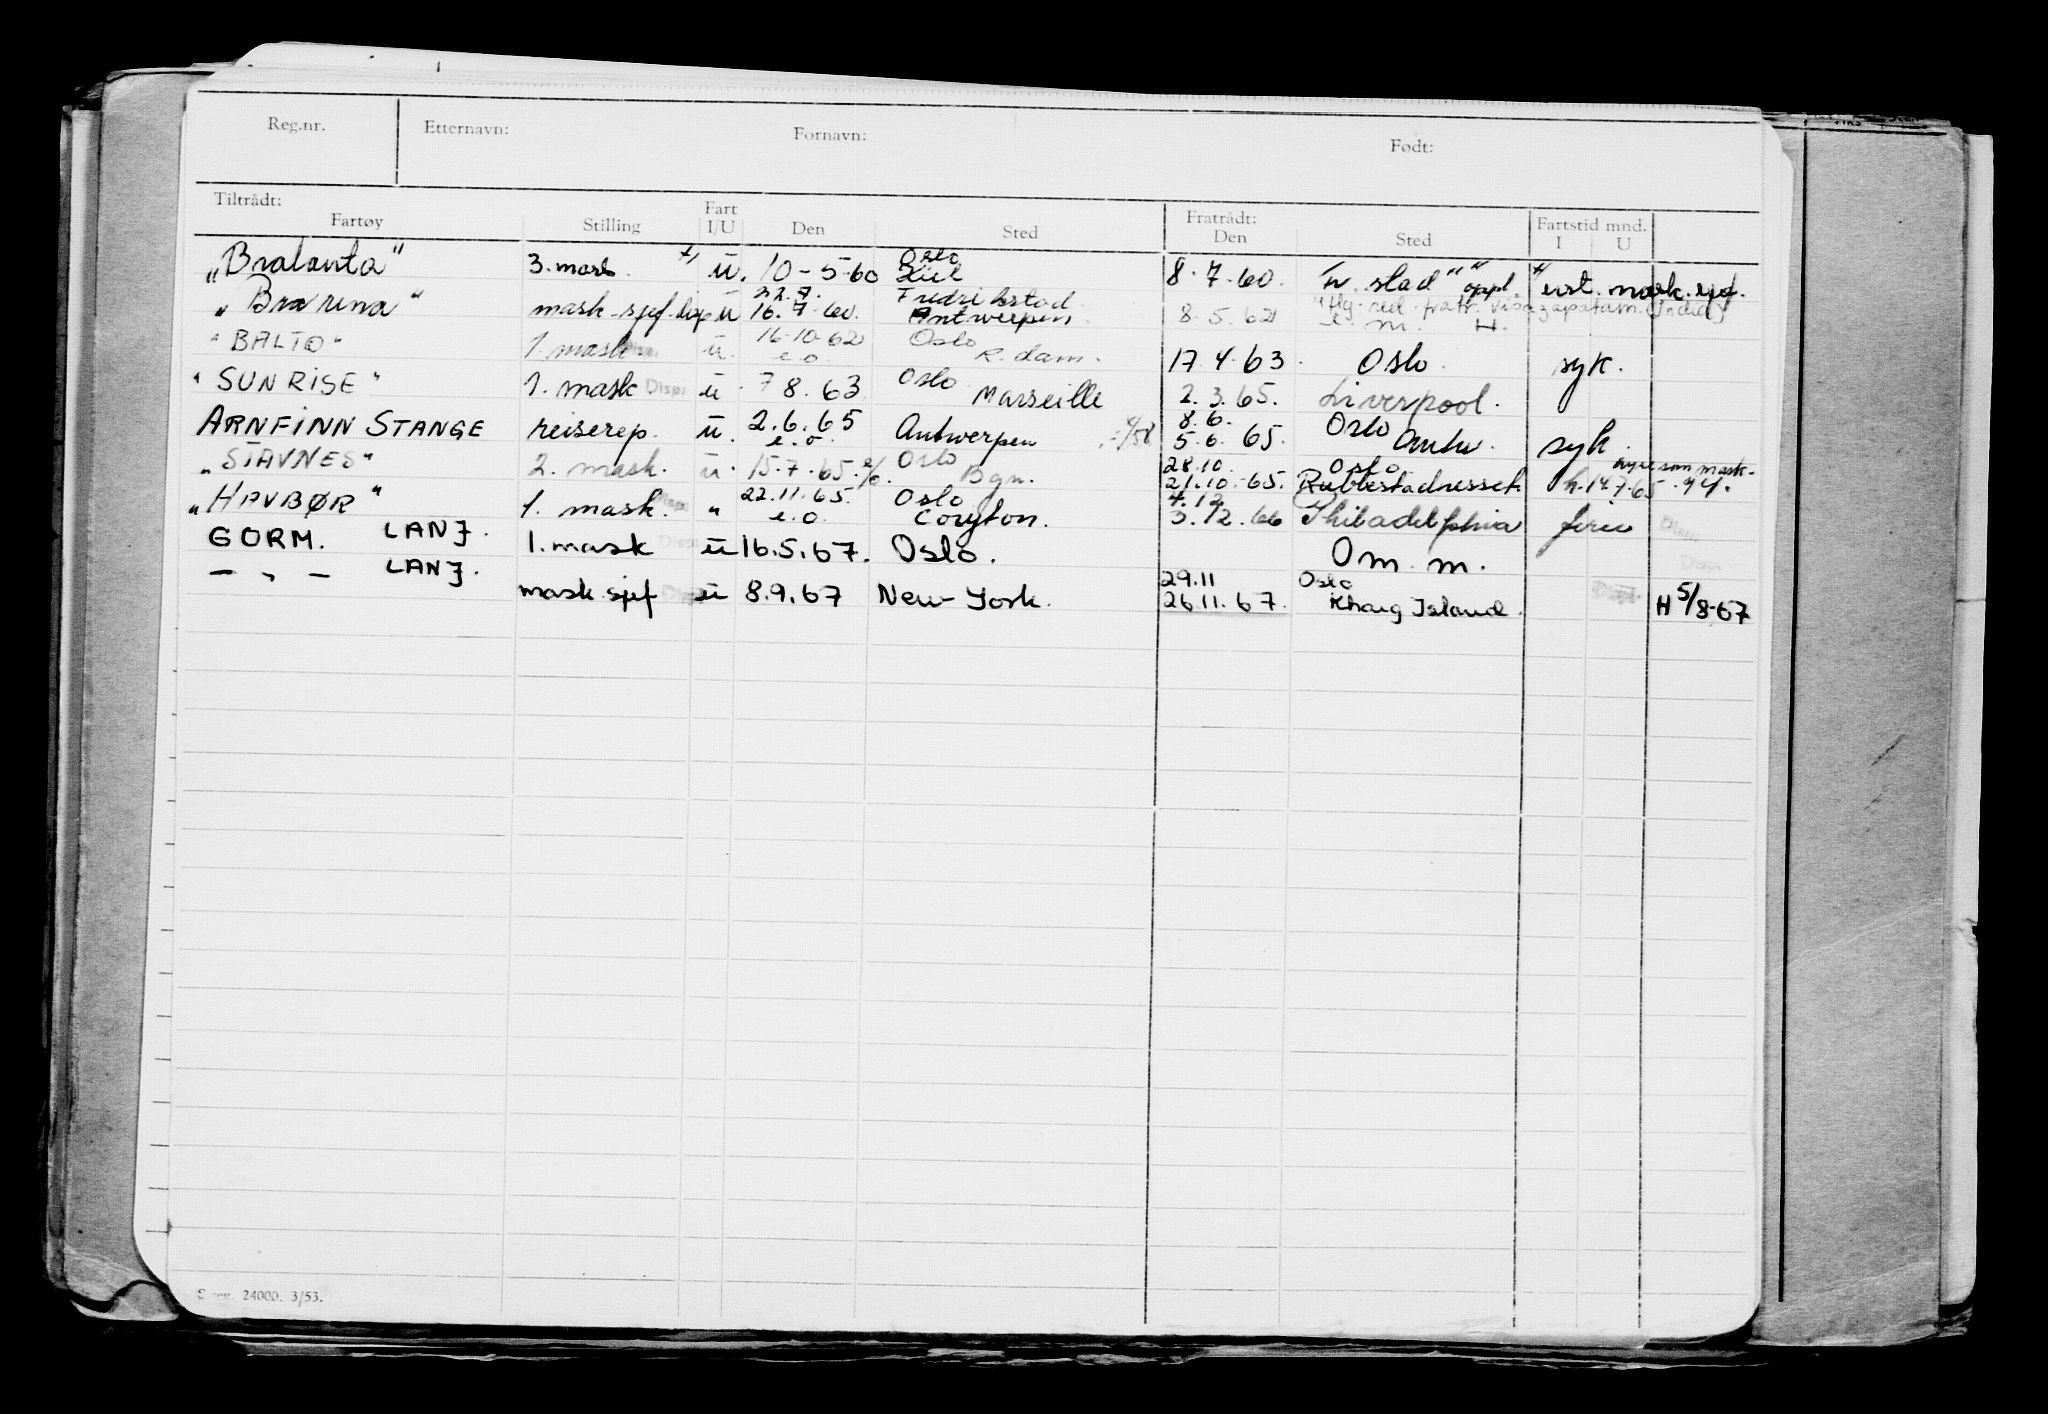 Reg.nr. Etternavn: Fornavn: Født:
Tiltrådt: Fratrådt:
Fartøy Stilling Fart I/U Den Sted Den Sted Fartstid mnd. I U
Oslo
"Bralanta" 3. mask. +) u. 10-5-60 Kiel 8.7.60. Fr. stad "
22.7. Fredrikstad
"Brarena" mask.sjef. disp u 16.7.60. Antwerpen. 8.5.62
16-10-62 Oslo
"BALTO" 1. mask Disp. u. e.o. R.dam. 17.4.63. Oslo. syk.
"SUNRISE" 1. mask Disp. u. 7 8. 63 Oslo Marseille 2.3.65. Liverpool.
2.6.65 8.6. Oslo
ARNFINN STANGE reiserep. u. e.o. Antwerpen 5.6.65. Antw. syk.
28.10. Oslo
"STAVNES" 2. mask. u. 15.7.65. e/o. Oslo Bgn. 21.10.65.
22.11.65. Oslo 4.12
"HAVBØR" 1. mask. Disp. " e.o. Coryton. 3.12.66 Philadelphia ferie Disp.
GORM. LANJ. 1. mask Disp. u 16.5.67. Oslo. Om. m. Disp.
29.11 Oslo
— " — LANJ. mask.sjef Disp. u 8.9.67 New York. 26.11.67. Kharg Island. Disp. H 5/8-67
24000. 3/53.